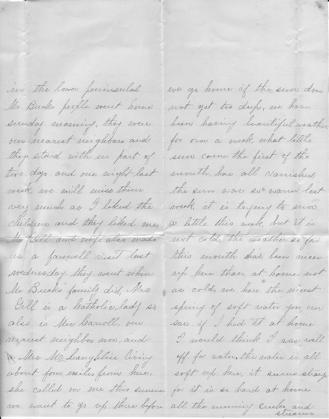 in the lower peninsula
Mr Bucks people went home
sunday morning, they were
our nearest neighbors and
they stoped with us part of
two days and one night last
week we will miss them
very much as I liked the
children and they liked me
Mr Gill and wife also made
us a farewell visit last
wednesday they went when
Mr Bucks family did, Mrs
Gill is a Catholic lady so
also is Mrs Carroll, our
nearest neighbor now, and
Mrs McLaughlin living
about four miles from here,
she called on me this summer
we want to go up there before
we go home if the snow dont
not get too deep, we have
been having beautiful weather
for over a week what little
snow came the first of the
month has all vanished
the sun was so warm last
week it is trying to snow
a little this week but it is
not cold, the weather so far
this month has been nicer
up here than at home not
as cold, we have the nicest
spring of soft water you ever
saw if I had it at home
I would think I was well
off for water, the water is all
soft up here it seems strange
for it is so hard at home
all the running creeks and
streams